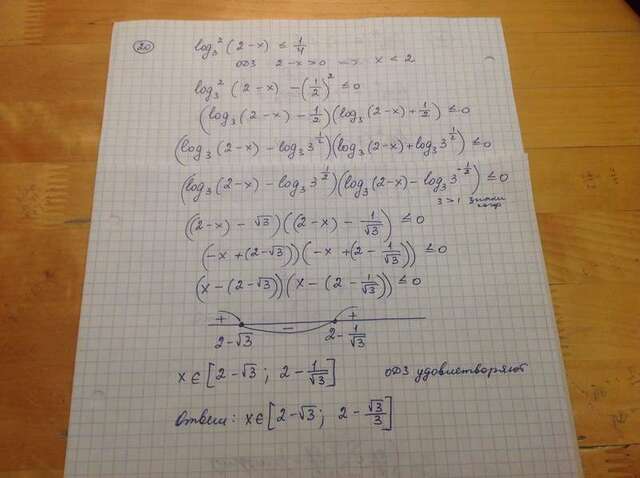 20
log₃²(2-x) ≤ 1/4
ОДЗ 2-x>0 x < 2
log₃²(2-x) - (1/2)² ≤ 0
(log₃(2-x) - 1/2)(log₃(2-x) + 1/2) ≤ 0
(log₃(2-x) - log₃3^(1/2))(log₃(2-x) + log₃3^(1/2)) ≤ 0
(log₃(2-x) - log₃3^(1/2))(log₃(2-x) - log₃3^(-1/2)) ≤ 0
3 > 1 знаки
((2-x) - √3)((2-x) - 1/√3) ≤ 0
(-x + (2-√3))(-x + (2 - 1/√3)) ≤ 0
(x - (2-√3))(x - (2 - 1/√3)) ≤ 0
+ - +
2-√3 2 - 1/√3
x ∈ [2-√3; 2 - 1/√3] ОДЗ удовлетворяют
Ответ: x ∈ [2-√3; 2 - √3/3]